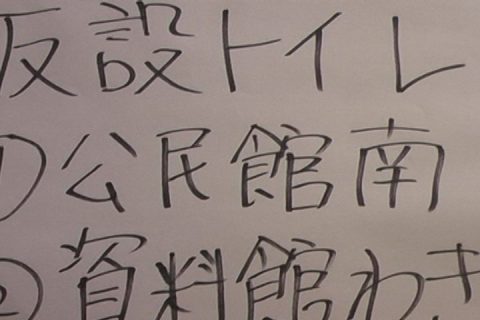 仮設トイレ
①公民館南
②資料館わき